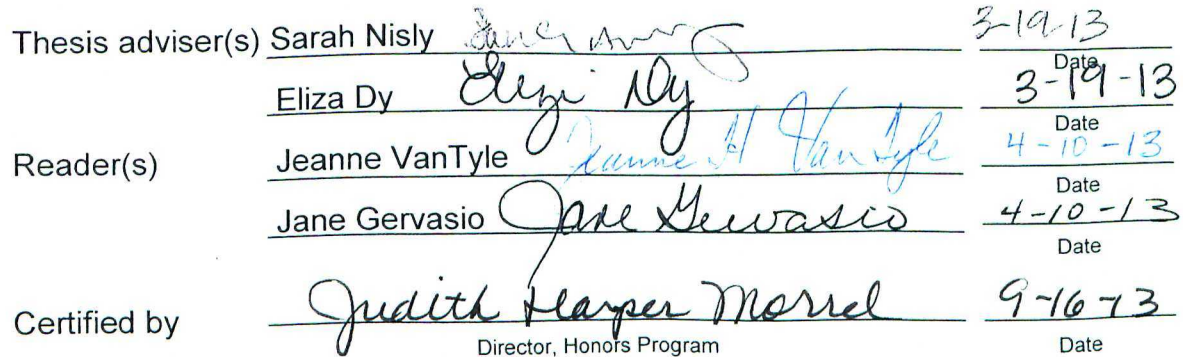 Thesis adviser(s) Sarah Nisly 3-19-13
Date
Eliza Dy Eliza Dy 3-19-13
Date
Reader(s) Jeanne VanTyle Jeanne H Van Tyle 4-10-13
Date
Jane Gervasio Jane Gervasio 4-10-13
Date
Certified by Judith Harper Morrel 9-16-13
Director, Honors Program Date